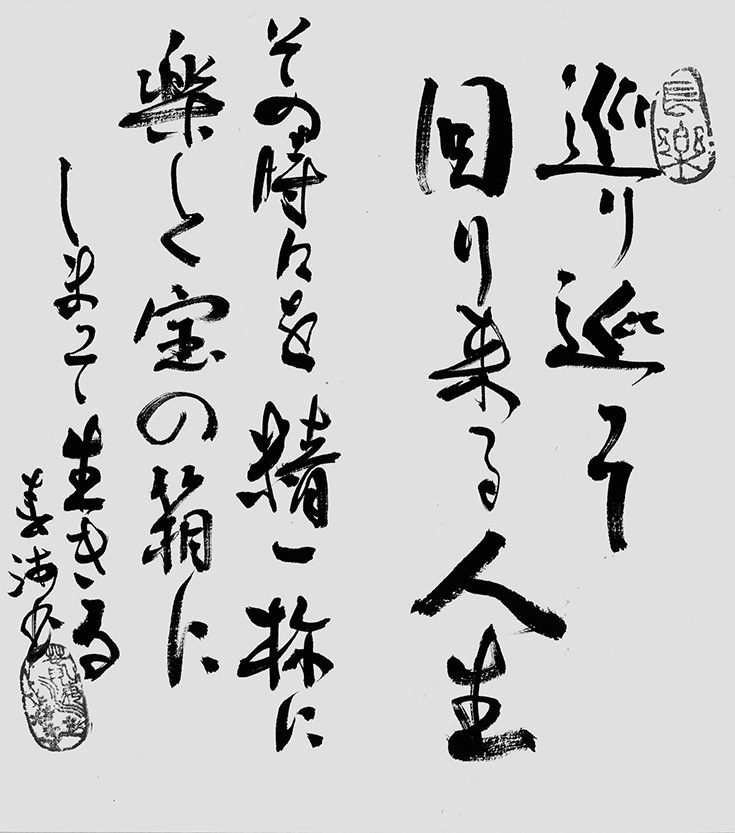 長樂
巡り巡って
回り来る人生
その時々を精一杯に
楽しく宝の箱に
しまって生きる